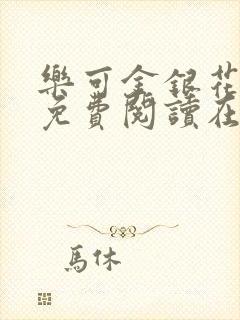 樂可金銀花
免費閱讀在
馬休